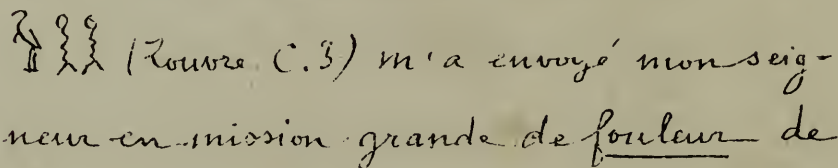 (Louvre C.3) m'a envoyé mon seig-
neur en mission grande de fouleur de